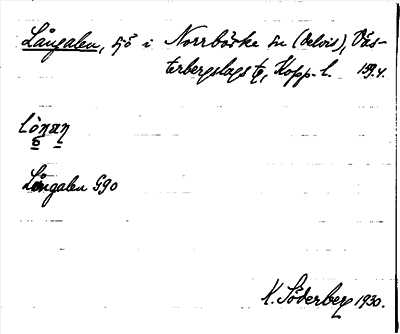 Långalen, sjö i Norrbärke sn (delvis), Väs-
terbergslags tg, Kopp. l. 159.4.
Lònan
Långalen G90
K. Söderberg 1930.